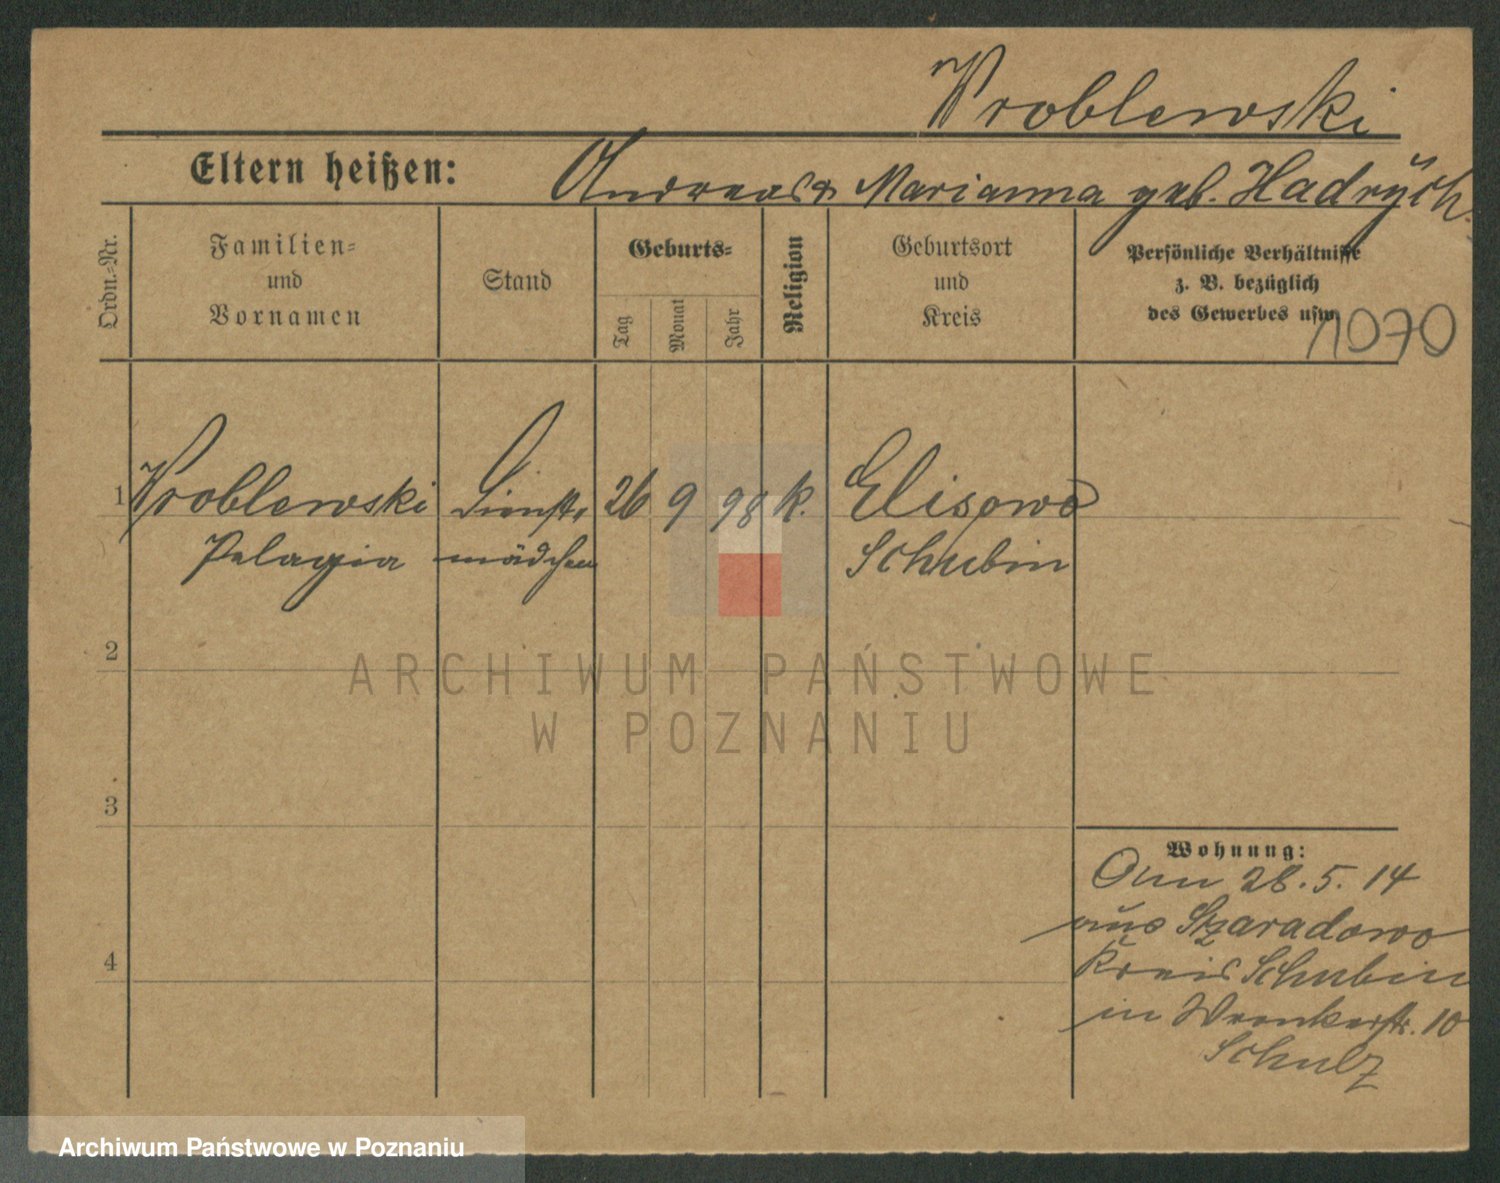 Wroblewski
Eltern heißen: Andreas & Marianna geb. Hadrÿch.
Ordn.=Nr.
Familien=
und
Vornamen
Stand
Geburts=
Tag
Monat
Jahr
Religion
Geburtsort
und
Kreis
Persönliche Verhältnisse
z. B. bezüglich
des Gewerbes usw.
1070
1 Wroblewski Dienst= 26 9 98 K. Elisowo
Pelagia mädchen Schubin
2
3
4
Wohnung:
Am 28.5.14
aus Szaradowo
Kreis Schubin
in Wronkerstr. 10
Schulz
ARCHIWUM PAŃSTWOWE
W POZNANIU
Archiwum Państwowe w Poznaniu